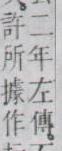 二年左傳
許所據作